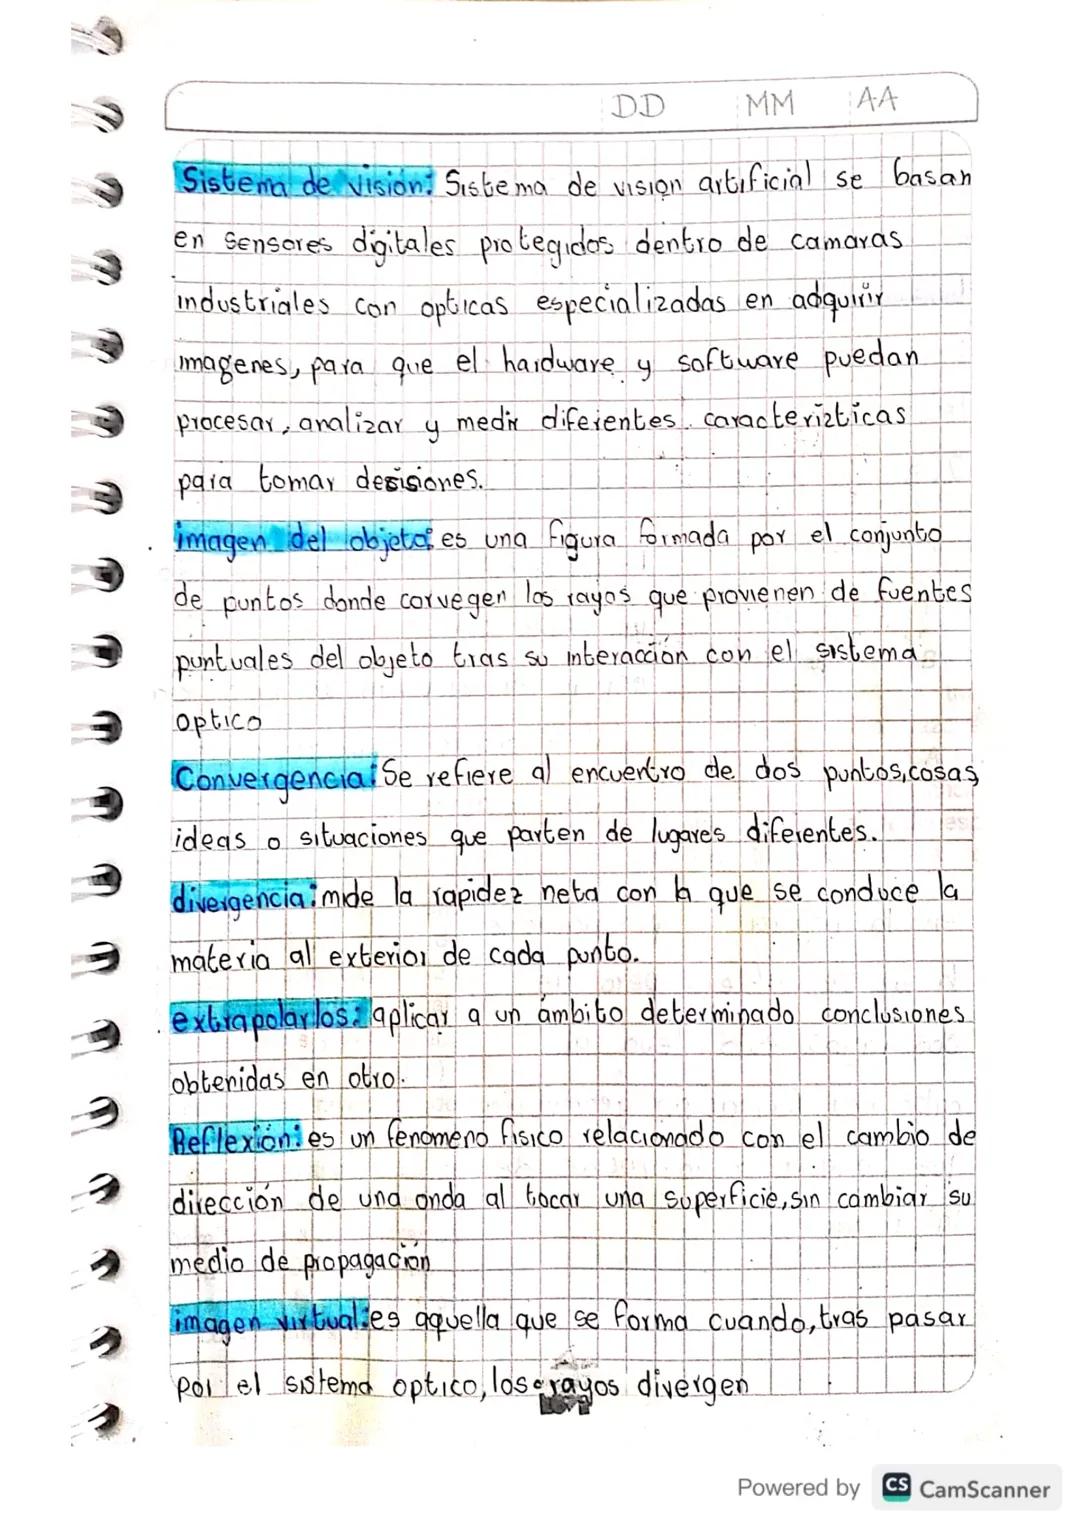 DD MM AA
Sistema de visión: Sistema de vision artificial se basan
en sensores digitales protegidos dentro de camaras
industriales con opticas especializadas en adquirir
imagenes, para que el hardware y software puedan
procesar, analizar y medir diferentes caracterizticas
para tomar desisiones.
imagen del objeto: es una figura formada por el conjunto
de puntos donde corvegen los rayos que provienen de fuentes
puntuales del objeto tras su interacción con el sistema
optico
Convergencia: Se refiere al encuentro de dos puntos, cosas,
ideas o situaciones que parten de lugares diferentes.
divergencia: mide la rapidez neta con la que se conduce la
materia al exterior de cada punto.
extrapolarlos: aplicar a un ámbito determinado conclusiones
obtenidas en otro.
Reflexión: es un fenomeno fisico relacionado con el cambio de
dirección de una onda al tocar una superficie, sin cambiar su
medio de propagación
imagen virtual: es aquella que se forma cuando, tras pasar
por el sistema optico, los rayos divergen
LOVE
Powered by CS CamScanner